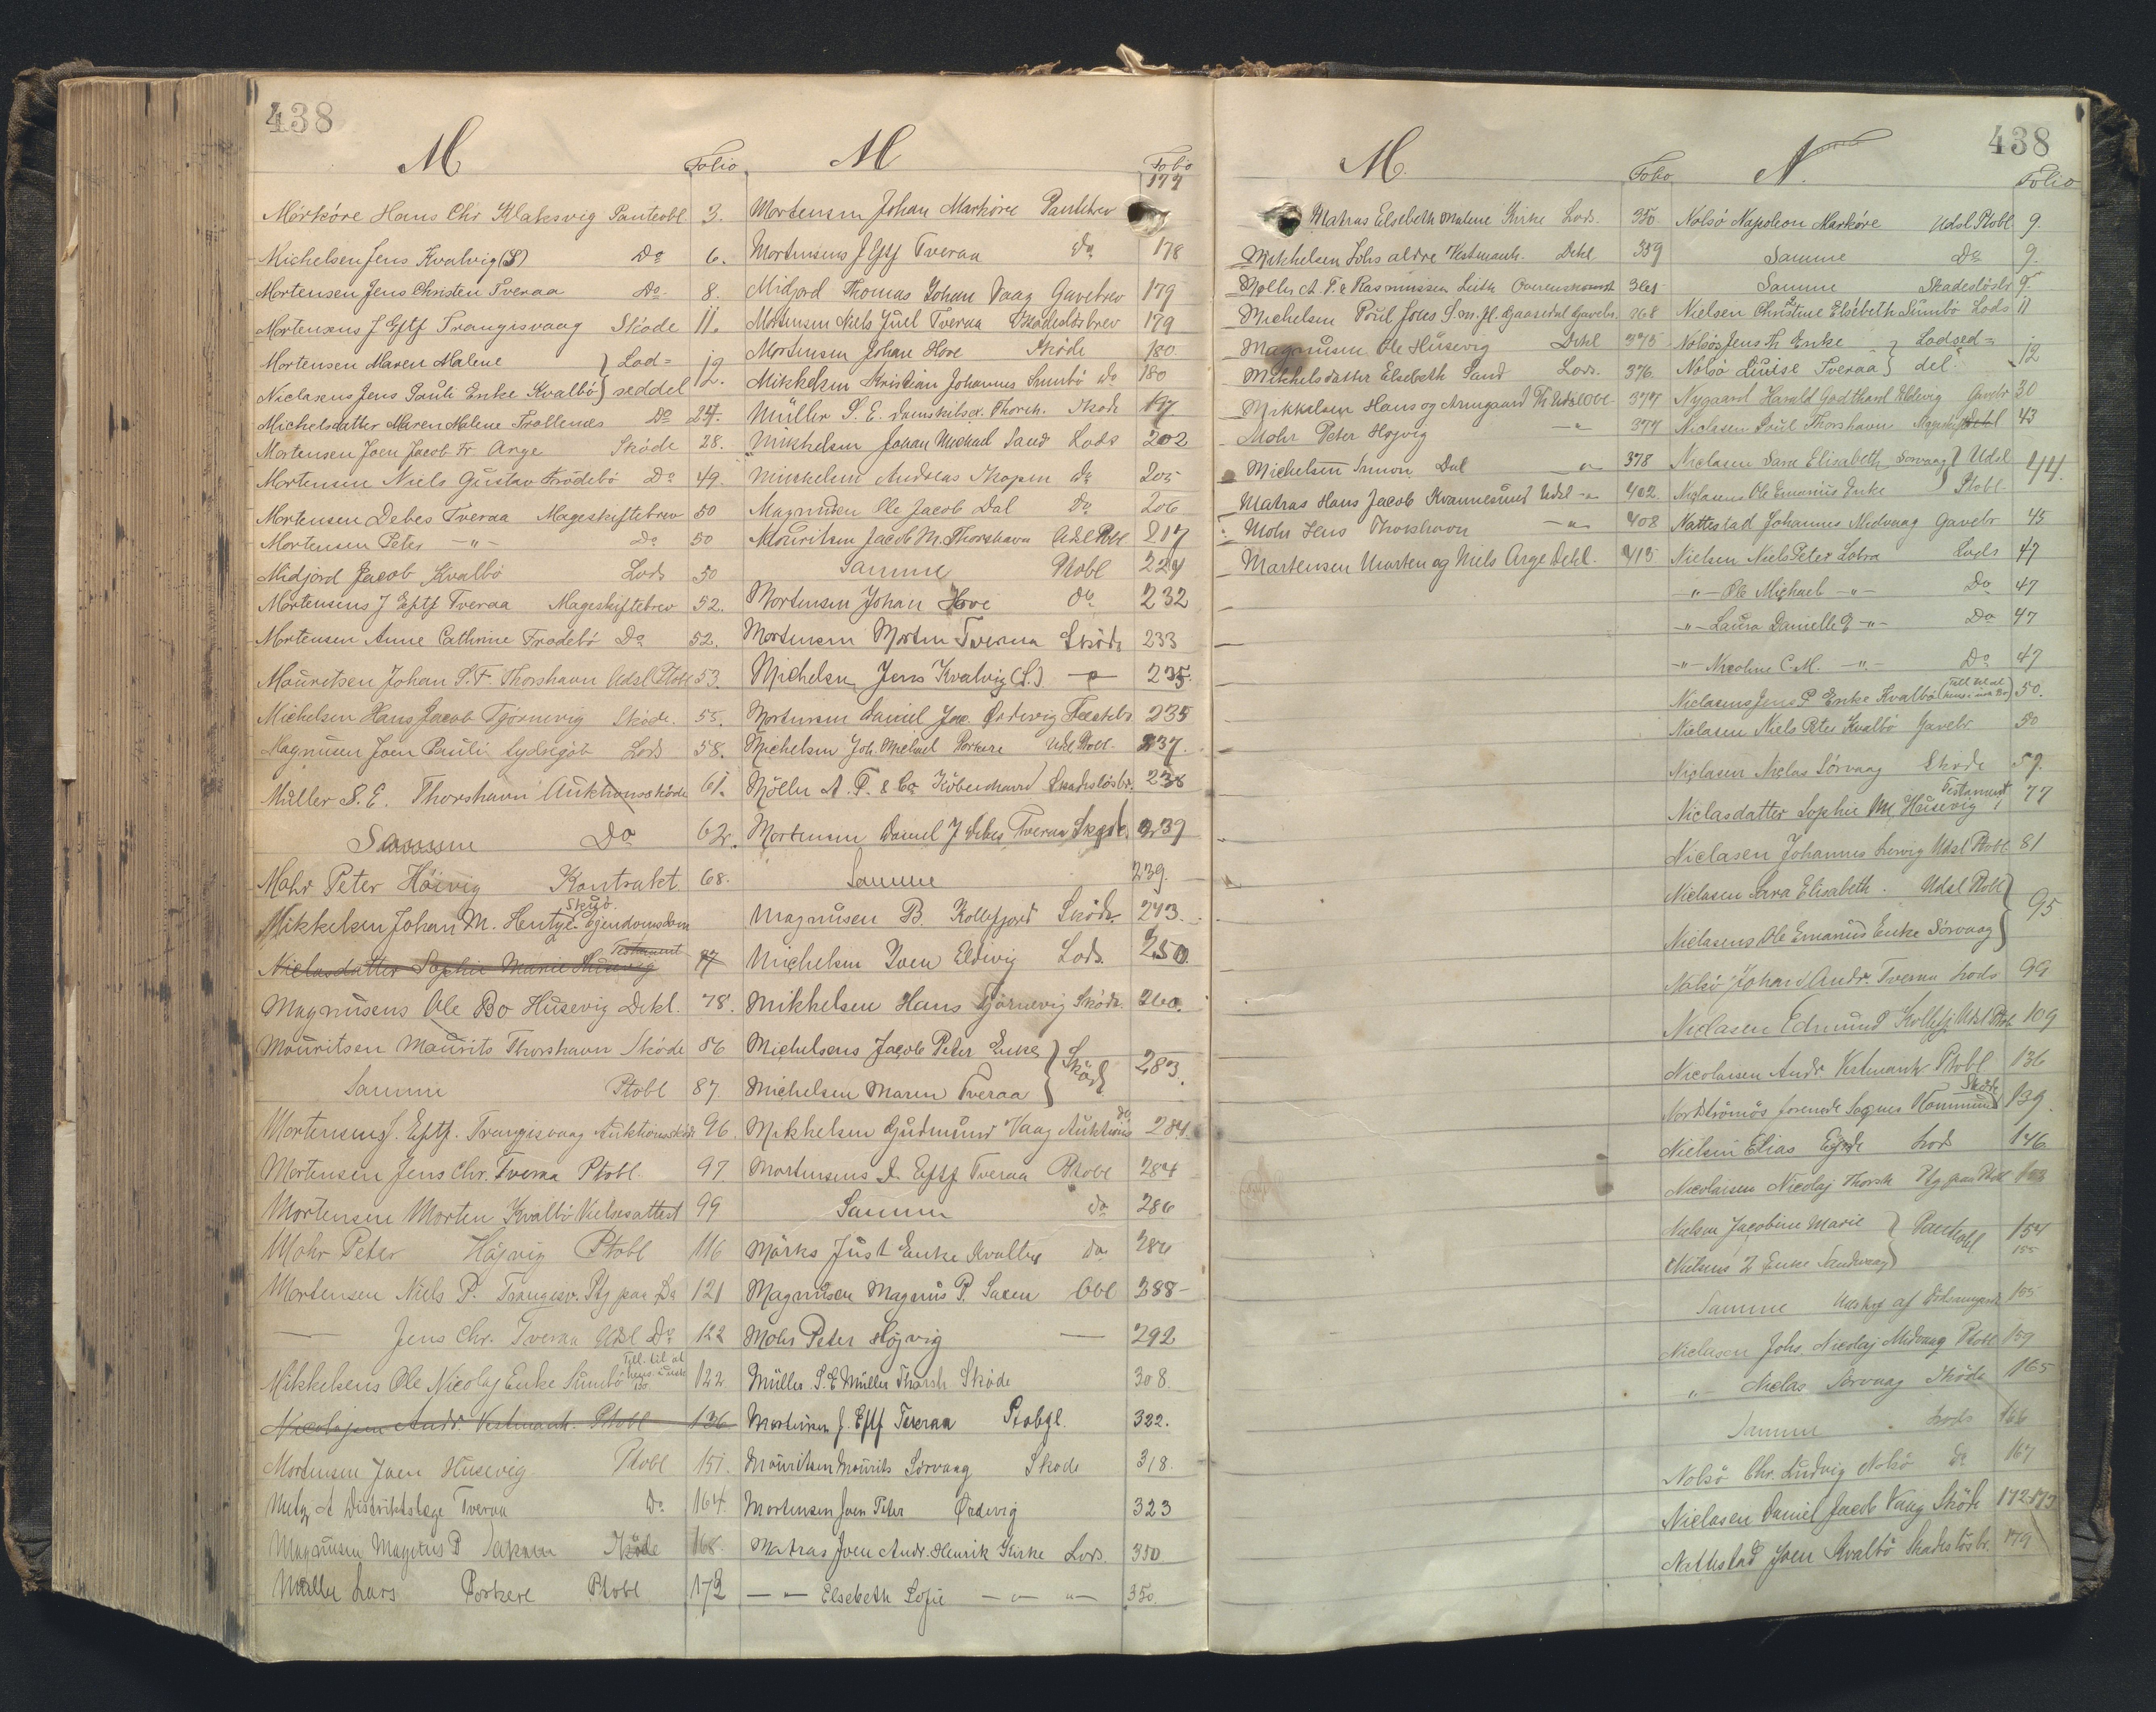 438
M
Folio
Mørkøre Hans Chr Klaksvig Panteobl 3.
Michelsen Jens Kvalvig (S) Do 6.
Mortensen Jens Christen Tveraa Do. 8.
Mortensens J Eftf Trangisvaag Skøde 11.
Mortensen Maren Malene } Lod=
Niclasens Jens Pauli Enke Kvalbø } seddel 12.
Michelsdatter Maren Malene Trøllenes Do 24.
Mortensen Joen Jacob Fr. Arge Skøde 28.
Mortensen Niels Gustav Frodebø Do 49.
Mortensen Debes Tveraa Mageskiftebrev 50
Mortensen Peter -"- Do 50
Midjord Jacob Kvalbø Lods 50
Mortensens J Eftf Tveraa Mageskiftebrev 52.
Mortensen Anne Cathrine Frodebø Do 52.
Mouritsen Johan S.F. Thorshavn Udsl Ptobl 53.
Michelsen Hans Jacob Tjørnevig Skøde. 55.
Magnusen Joen Pauli Sydregøt Lods 58.
Müller S. E. Thorshavn Auktionsskøde 61.
Samme Do 62.
Mohr Peter Høivig Kontrakt 68.
Skjø.
Mikkelsen Johan M. Ejendomsdom
Testament
Niclasdatter Sophie Marie Husevig 77
Magnusens Ole Bo Husevig Dekl. 78.
Mouritsen Mourits Thorshavn Skøde 86
Samme Ptobl 87
Mortensens J. Eftf. Trangisvaag Auktionsskøde 96.
Mortensen Jens Chr. Tveraa Ptobl. 97
Mortensen Morten Kvalbø Vielsesattest 99
Mohr Peter Højvig Ptobl 116
Mortensen Niels P. Trangisv. Ptg paa Do 121
— Jens Chr. Tveraa Udsl Do 122
Till. til at
Mikkelsens Ole Nicolaj Enke Sumbø hens i uskift bo 122
Nicolajsen Andr. Vestmanh. Ptobl 136
Mortensen Joen Husevig Ptobl 151.
Metz A Distriktslæge Tveraa Do. 164.
Magnusen Magnus P Saksen Skøde 168.
Müller Lars Porkere Ptobl 172
M
Folio
177
Mortensen Johan Mørkøre Pantebrev
Mortensens J Eftf Tveraa Do 178
Midjord Thomas Johan Vaag Gavebrev 179
Mortensen Niels Juel Tveraa Skadesløsbrev 179
Mortensen Johan Hove Skøde 180
Mikkelsen Kristian Johannes Sumbø Do 180
Müller S. E. Thorsh. Skøde 197
Mikkelsen Johan Michael Sand Lods 202
Mikkelsen Andreas Skopen Do 205
Magnusen Ole Jacob Dal Do 206
Mouritsen Jacob M. Thorshavn Udsl Ptobl 217
Samme Ptobl 224
Mortensen Johan Hove do 232
Mortensen Morten Tveraa Skøde 233
Michelsen Jens Kvalvig (S.) — 235.
Mortensen Daniel Jac. Ørdevig Fæstebr 235
Michelsen Joh. Michael Porkere Udsl Ptobl. 237.
Møller A. P. & Co København Skadesløsbr. 238
Mortensen Daniel J Debes Tveraa Skøde 239
Samme 239.
Magnusen B. Kollefjord Skøde 243.
Michelsen Joen Eldivig Lods 250
Mikkelsen Hans Tjørnevig Skøde. 260.
Michelsens Jacob Peter Enke } Skøde
Michelsen Maren Tveraa } 283.
Mikkelsen Gudmund Vaag Auktions do 284
Mortensens J. Eftf Tveraa Ptobl 284
Samme do 286
Mørks Just Enke Kvalbø do 286
Magnusen Magnus P. Saxen Obl 288-
Mohr Peter Højvig — 292
Müller S. E Müller Thorsh Skøde 308.
Mortensen J. Eftf Tveraa Ptobgl. 322.
Mouritsen Mourits Sørvaag Skøde 318.
Mortensen Joen Peter Ørdevig 323
Matras Joen Andr. Henrik Kirke Lods. 350
— " — Elsebeth Sofie — " — " — 350.
438
M.
Folio
Matras Elsebeth Malene Kirke Lods. 350
Mikkelsen Johs ældre Vestmanh. Dekl. 359
Møller A. P. & Rasmussen Leith Overenskomst 361
Michelsen Poul Jones S. Gaasedal Gavebr. 368
Magnusen Ole Husevig Dekl 375
Mikkelsdatter Elsebeth Sand Lods. 376.
Mikkelsen Hans og Armgaard Udsl Obl. 377
Mohr Peter Højvig — " 377
Michelsen Simon Dal — " 378
Matras Hans Jacob Kvannesund Udsl — " 402.
Mohr Jens Thorshavn — " — 408
Mortensen Morten og Niels Arge Dekl. 413.
N.
Folio
Nolsø Napoleon Mørkøre Udsl Ptobl. 9.
Samme Do 9.
Samme Skadesløsbr 9.
Nielsen Christine Elsebeth Sumbø Lods 11
Nolsøs Jens Th Enke } Lodsed=
Nolsø Louise Tveraa } del. 12
Nygaard Harald Godthard Eldevig Gavebr 30
Niclasen Poul Thorshavn Dekl 43
Niclasen Sara Elisabeth Sorvaag } Udsl
Niclasens Ole Emanus Enke } Ptobl. 44.
Nattestad Johannes Midvaag Gavebr 45
Nielsen Niels Peter Lobra Lods 47
-"- Ole Michael -"- Do 47
-"- Laura Danielle E -"- Do 47
-"- Nicoline C.M. -"- Do 47
Niclasens Jens P Enke Kvalbø (Till til at hens i usk Bo) 50.
Niclasen Niels Peter Kvalbø Gavebr 50
Niclasen Niclas Sørvaag Skøde 59.
Testament
Niclasdatter Sophie M. Husevig 77
Niclasen Johannes Lervig Udsl Ptobl 81
Niclasen Sara Elisabeth. Udsl Ptobl }
Niclasens Ole Emanus Enke Sørvaag } 95
Nolsø Johan Andr. Tveraa Lods 99
Niclasen Edmund Kollefj. Udsl Ptob 109
Nicolaisen Andr. Vestmanh Ptobl 136
Skøde
Nordstrømøs forenede Sognes Kommune 139.
Nielsen Elias Ejde Lods 146
Nicolaisen Nicolaj Thorsh Ptg paa Ptobl
Nielsen Jacobine Marie } Panteobl 154
Nielsens Z Enke Sandvaag } 155
Samme Udskr af 155
Niclasen Johs. Nicolaj Midvaag Ptobl 159
" — Niclas Sørvaag Skøde 165
Samme Lods 166
Nolsø Chr. Ludvig Nolsø Do 167
Niclasen Daniel Jacob Vaag Skøde 172 173
Nattestad Joen Kvalbø Skadesløsbr. 179